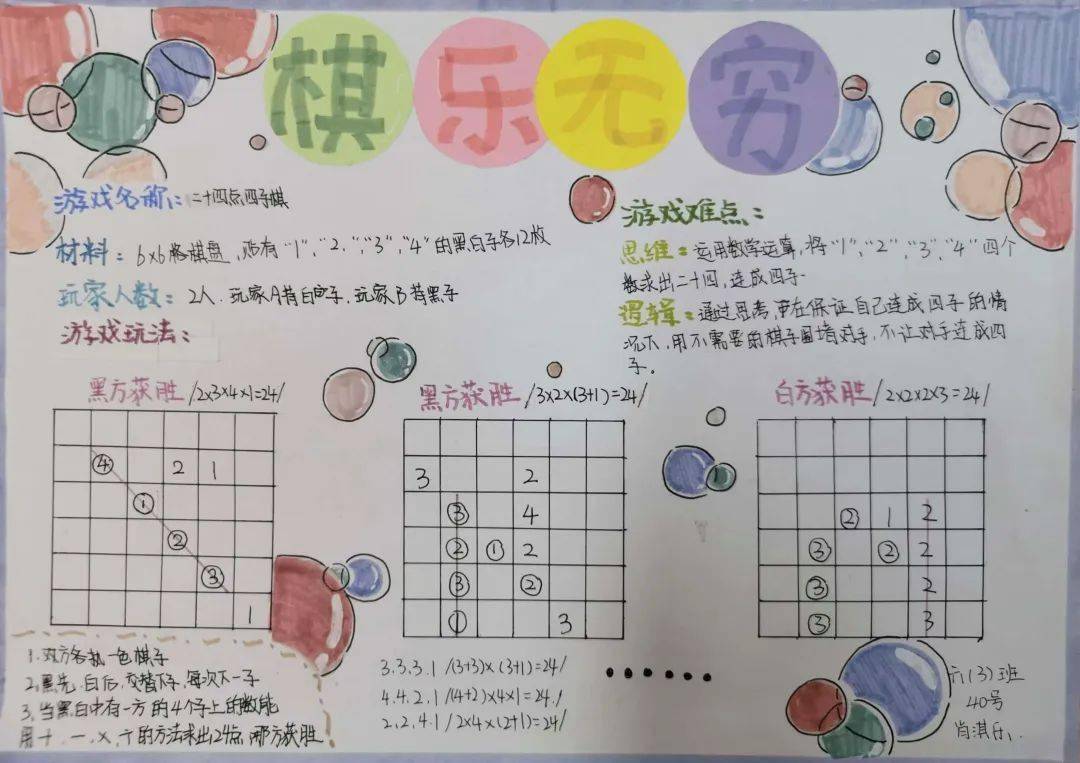 棋乐无穷
游戏名称:二十四点四子棋
材料:6×6格棋盘,贴有“1”,“2”,“3”,“4”的黑白子各12枚
玩家人数:2人.玩家A持白字子,玩家B持黑子
游戏玩法:
游戏难点:
思维:运用数学运算,将“1”,“2”,“3”,“4”四个
数求出二十四,连成四子.
逻辑:通过思考,在保证自己连成四子的情
况下,用不需要的棋子围堵对手,不让对手连成四
子.
黑方获胜 /2×3×4×1=24/
④ 2 1
①
②
③
1
黑方获胜 /3×2×(3+1)=24/
3 2
③ 4
② ① 2
③ ②
① 3
白方获胜 /2×2×2×3=24/
② 1 2
③ ② 2
③ 2
③ 3
1.双方各执一色棋子
2.黑先,白后,交替下子,每次下一子
3.当黑白中有一方的4个子上的数能
用+、-、×、÷的方法求出24点,哪方获胜
3.3.3.1 /(3+3)×(3+1)=24/
4.4.2.1 /(4+2)×4×1=24/
2.2.4.1 /2×4×(2+1)=24/
......
六(3)班
40号
肖淇乐